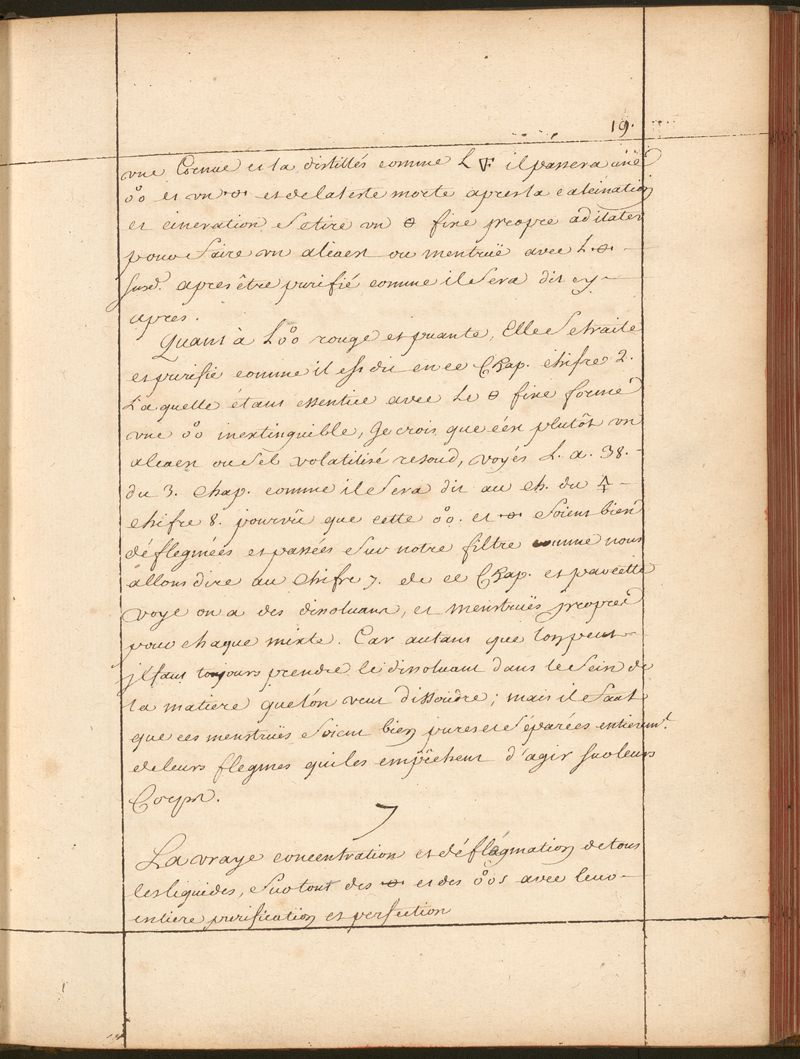 19.
vne Cornue et la distillés comme L 🜅 il passera une
o°o et vn 🜔 et de la teste morte apres la calcination
et cineration se tire vn 🜔 fixe propre à ditater
pour faire vn alcaest ou mentruë avec L
susd. apres être purifié comme il sera dit cy
apres.
Quant à Loo rouge et puante, Elle se traite
et purifie comme il est dit en ce Chap. chifre 2.
Laquelle étant essentiée avec Le 🜔 fixe forme
vne oo inextinguible, Je crois que c'én plutôt vn
alcaen ou Sel volatilisé resoud, voyés L. a. 38.
du 3. Chap. comme il sera dit au Ch. du
chifre 8. pourvû que cette oo. et soient bien
déflegmées et passées sur notre filtre comme nous
allons dire au chifre 7. de ce Chap. et par cette
voye on a des dissoluans, et menstruës propres
pour chaque mixte. Car autant que l'on peut
jl faut toujours prendre le dissoluant dans le sein de
la matiere que l'ón veut dissoudre; mais il faut
que ces menstruës soient bien pures et séparées entierem.t
de leurs flegmes qui les empêchent d'agir sur leurs
Corps.
7
La vraye concentration et déflégmation de tous
les liquides, surtout des et des oos avec leur
entiere purification et perfection